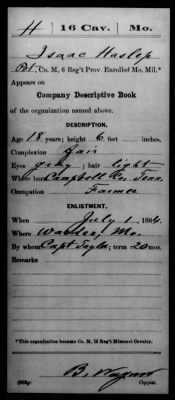 H | 16 Cav. | Mo.
Isaac Haslep
Pvt., Co. M, 6 Reg't Prov. Enrolled Mo. Mil.*
Appears on
Company Descriptive Book
of the organization named above.
DESCRIPTION.
Age 18 years; height 6 feet inches.
Complexion Fair
Eyes grey; hair light
Where born Campbell Co. Tenn.
Occupation Farmer
ENLISTMENT.
When July 1, 1864.
Where Mo.
By whom Capt Taylor; term 20 mos.
Remarks
*This organization became Co. M, 16 Reg't Missouri Cavalry.
B.
Copyist.